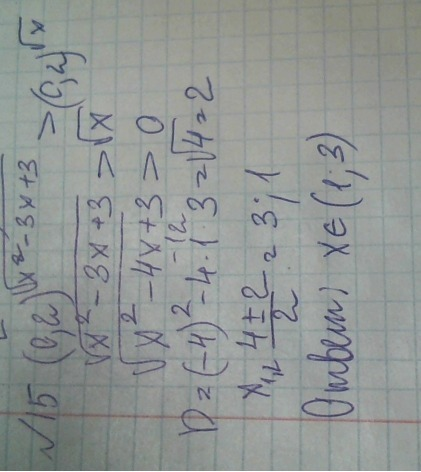 №15 (0,2)^√(x²-3x+3) > (0,2)^√x
√(x²-3x+3) > √x
√(x²-4x+3) > 0
D=(-4)²-4·1·3=√4=2
-12
x₁,₂ = (4±2)/2 = 3; 1
Ответ: x∈(1;3)